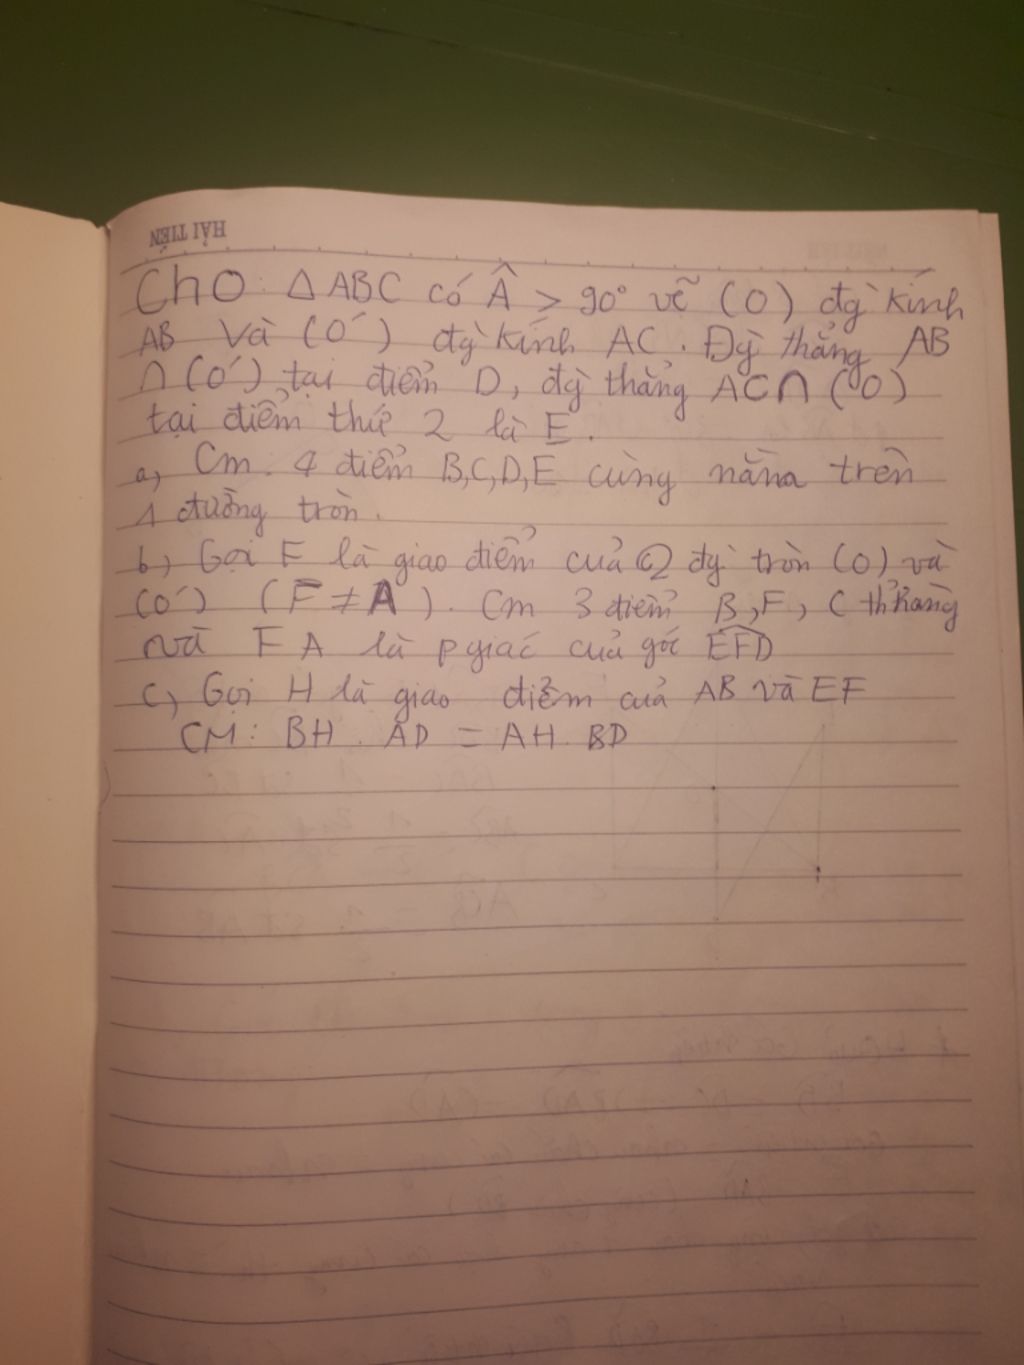 HẢI TIẾN
Cho: Δ ABC có Â > 90° vẽ (O) đg` kính
AB và (O') đg` kính AC. Đg` thẳng AB
∩ (O') tại điểm D, đg` thẳng AC ∩ (O)
tại điểm thứ 2 là E.
a, Cm: 4 điểm B,C,D,E cùng nằm trên
1 đường tròn.
b, Gọi F là giao điểm của 2 đg` tròn (O) và
(O') (F ≠ A). Cm 3 điểm B, F, C thẳng
và FA là pgiác của góc EFD
c, Gọi H là giao điểm của AB và EF
CM: BH . AD = AH . BD